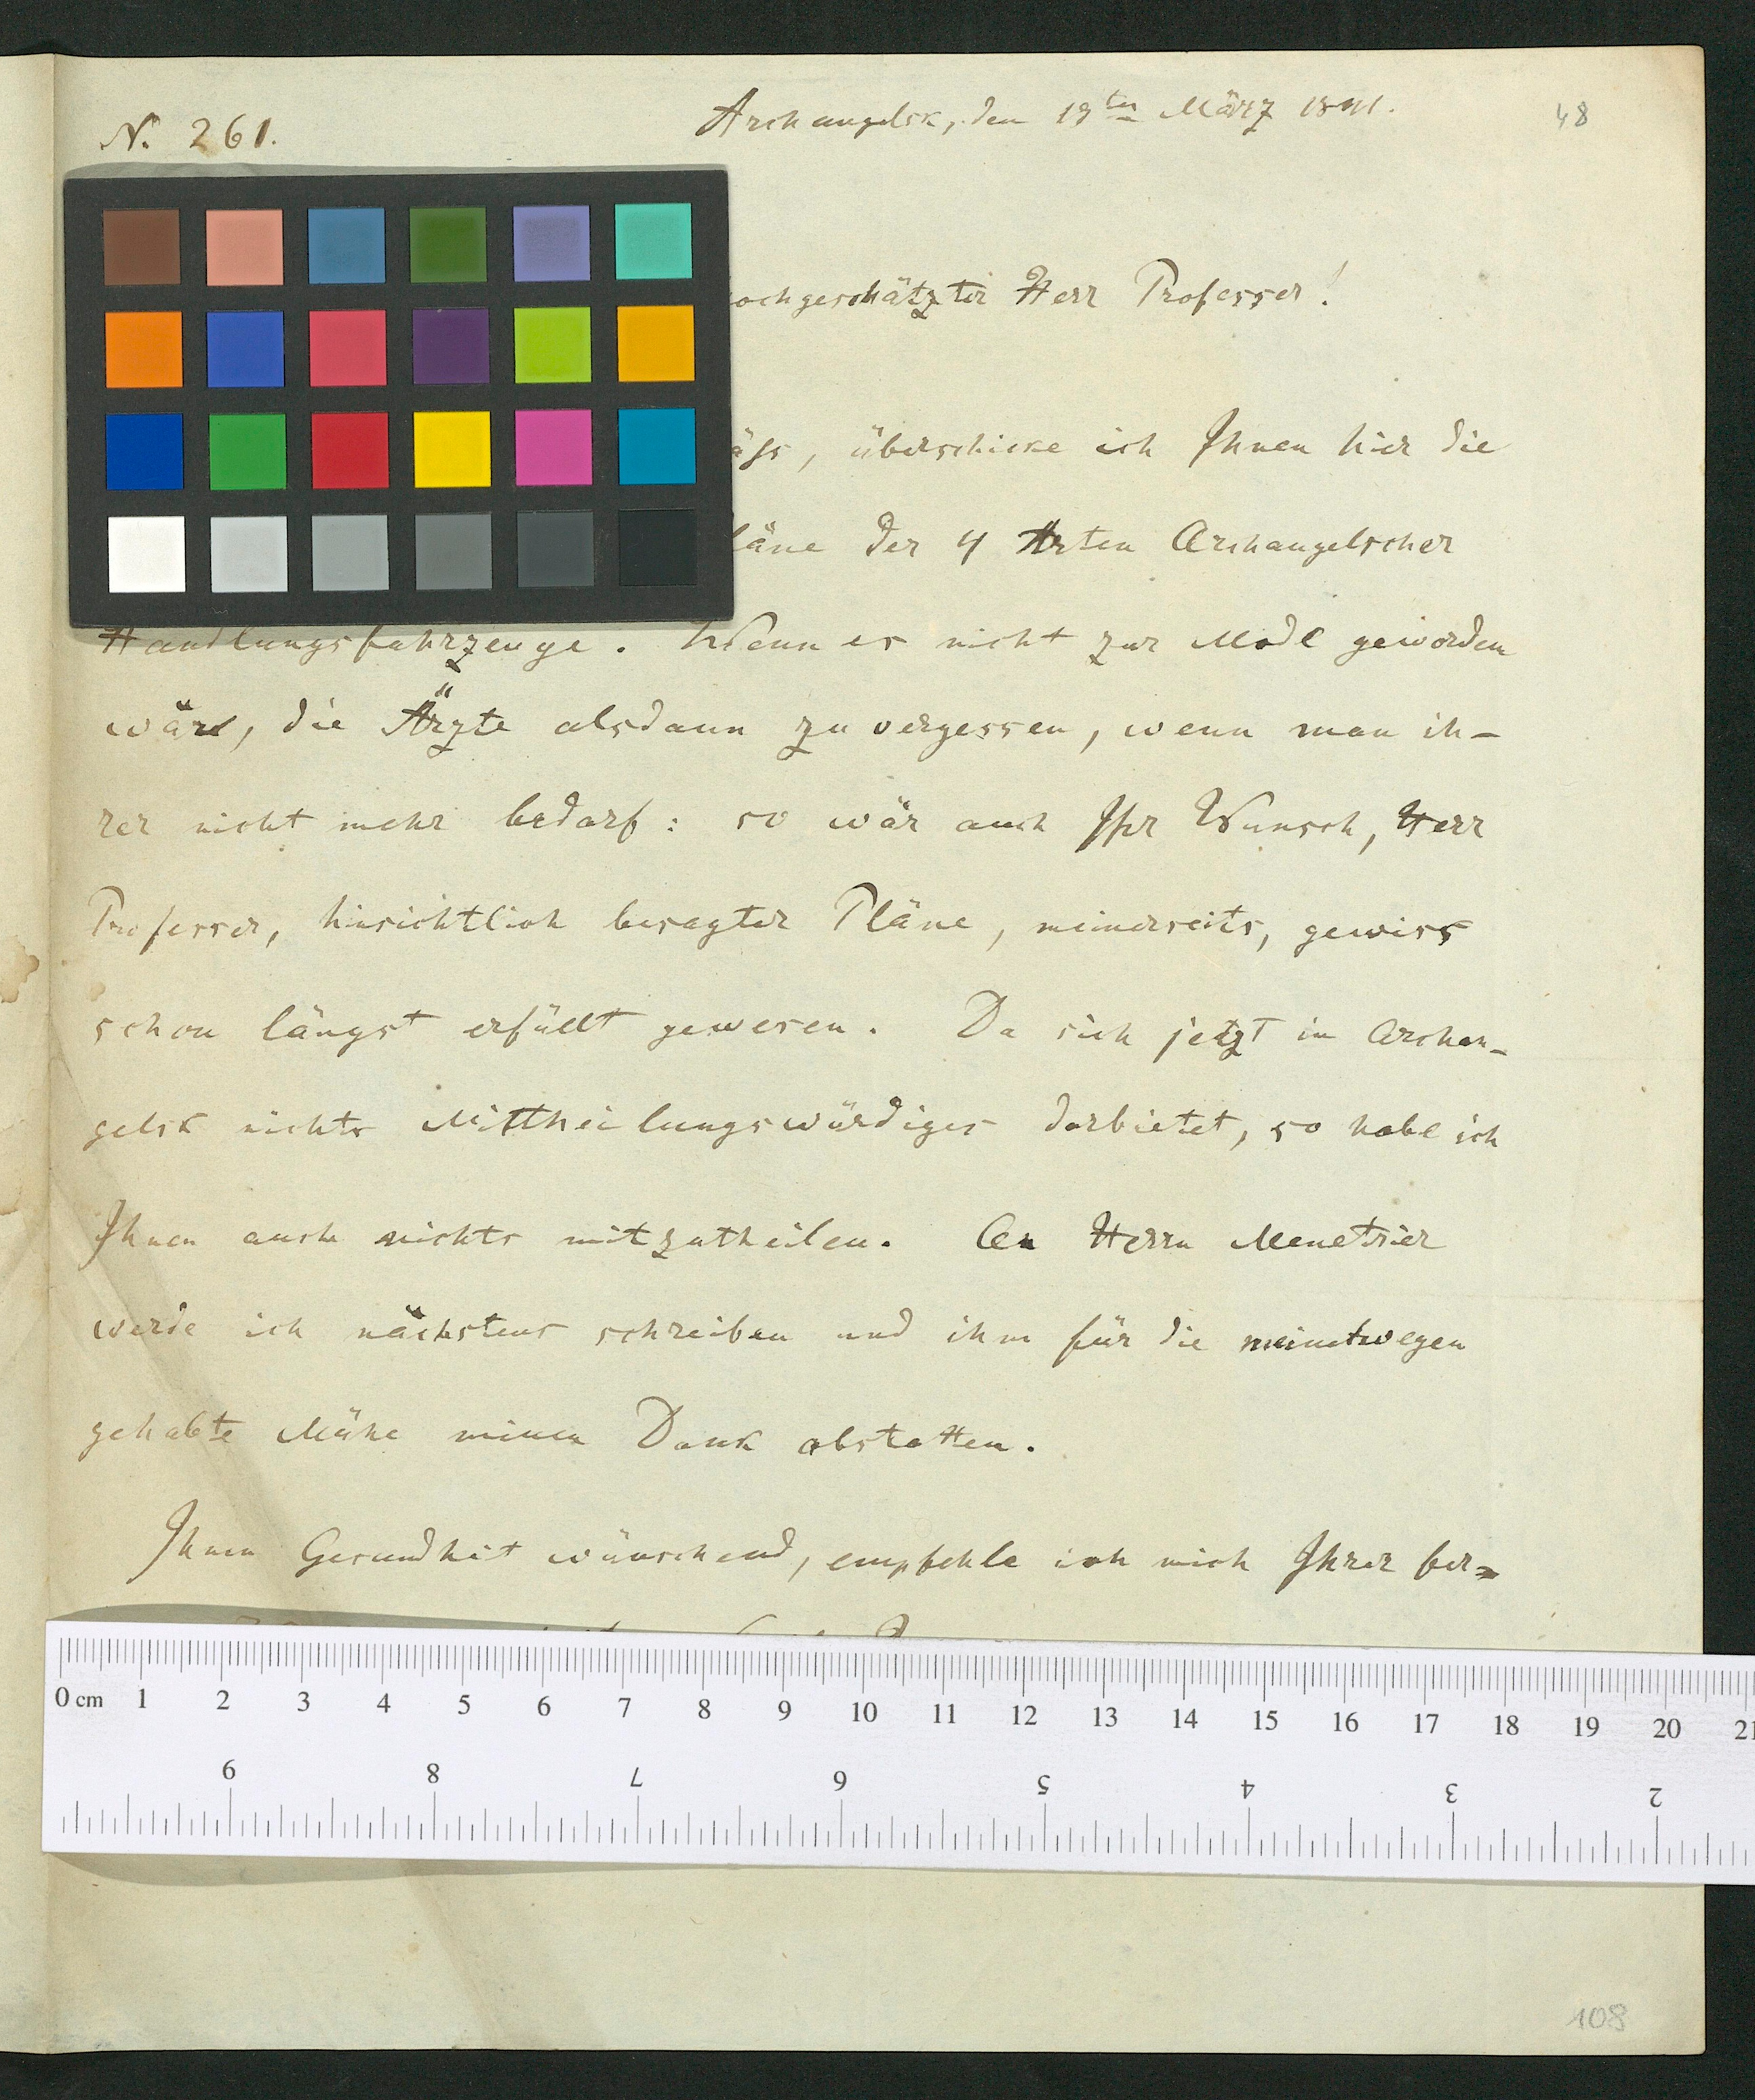 N. 261.
Archangelsk, den 19ten März 1841.
48
ochgeschätzter Herr Professer!
äss, überschicke ich Ihnen hier die
läne der 4 Arten Archangelscher
Handlungsfahrzeuge. Wenn es nicht zur Mode geworden
wäre, die Ärzte alsdann zu vergessen, wenn man ih-
rer nicht mehr bedarf: so wär auch Ihr Wunsch, Herr
Professer, hinsichtlich besagter Pläne, meinerseits, gewiss
schon längst erfüllt gewesen. Da sich jetzt in Archan-
gelsk nichts Mittheilungswürdiges darbietet, so habe ich
Ihnen auch nichts mitzutheilen. An Herrn Menetrier
werde ich nächstens schreiben und ihm für die meinetwegen
gehabte Mühe meinen Dank abstatten.
Ihnen Gesundheit wünschend, empfehle ich mich Ihrer fer-
0 cm 1 2 3 4 5 6 7 8 9 10 11 12 13 14 15 16 17 18 19 20 21
9 8 7 6 5 4 3 2
108